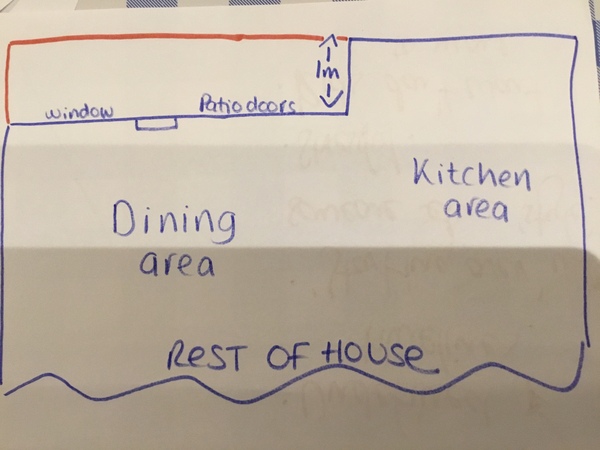 1m
window
Patio doors
Kitchen
area
Dining
area
REST OF HOUSE